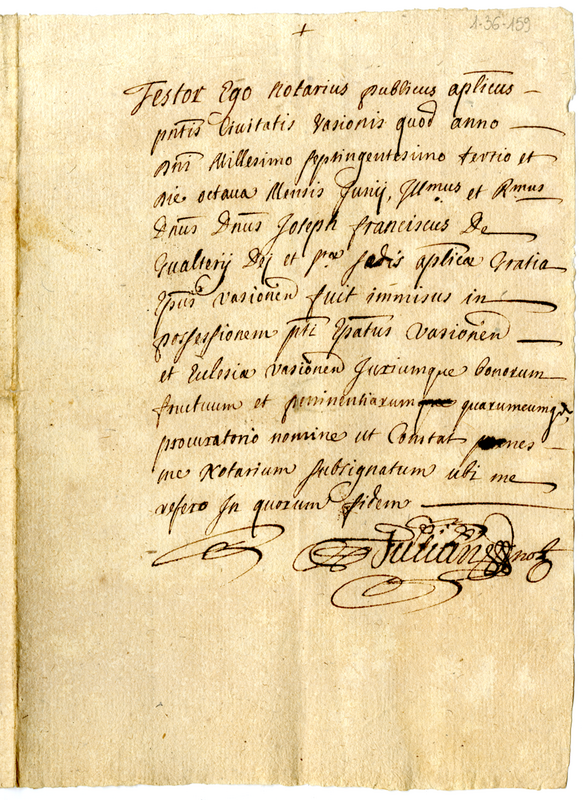 1-36-159
+
Testor Ego Notarius publicus aplicus
pntis Civitatis Vasionis quod anno
Dni Millesimo septingentesimo tertio et
die octava Mensis Junij, Illmus et Rmus
Dnus Dnus Joseph franciscus De
Gualterij Dej et stæ sedis aplicæ Gratia
Epus Vasionen fuit immisus in
possessionem pti Epatus Vasionen
et Eclesiæ Vasionen Juriumque bonorum
fructuum et pertinentiarum quarumcumq,
procuratorio nomine ut Constat penes
me Notarium subsignatum ubi me
refero In quorum fidem
Julian not